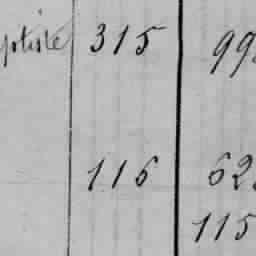 ptiste 315 99
116 62
115